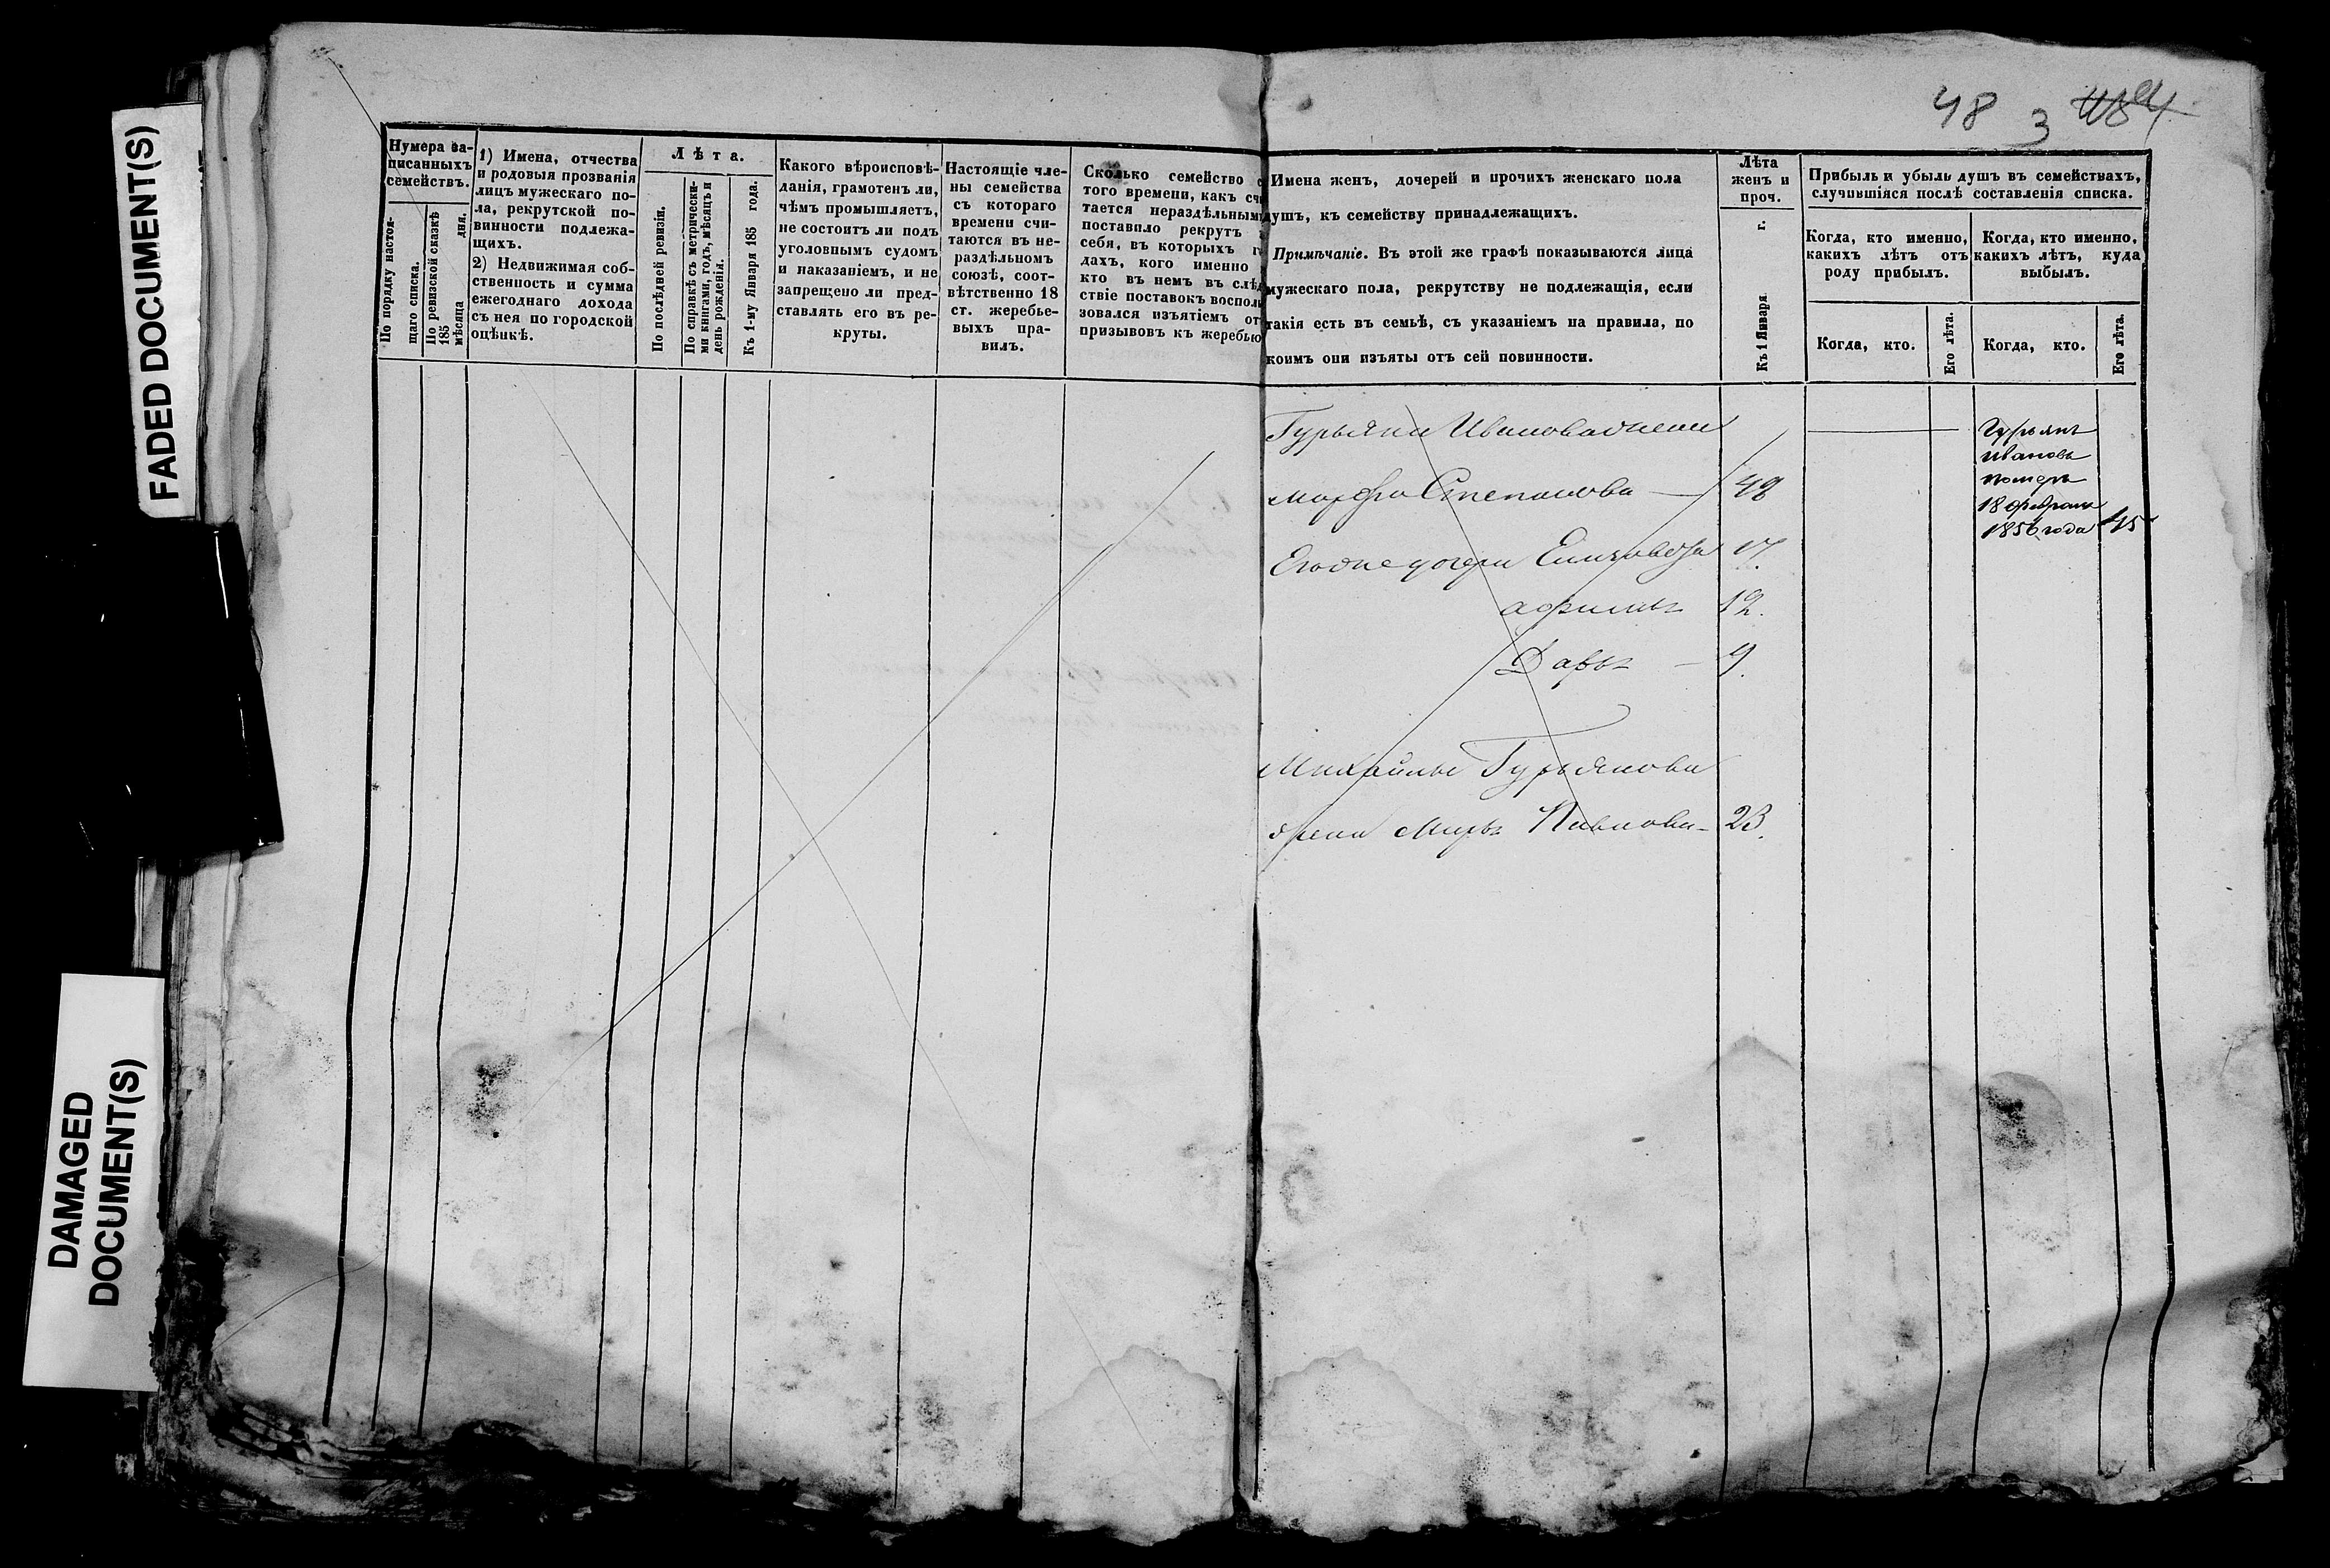 FADED DOCUMENT(S)
DAMAGED
DOCUMENT(S)
48 3
Нумера за-
писанныхъ
семействъ.
По порядку настоя-
щаго списка.
По ревизской сказкѣ
185
мѣсяца дня.
1) Имена, отчества
и родовыя прозванія
лицъ мужескаго по-
ла, рекрутской по-
винности подлежа-
щихъ.
2) Недвижимая соб-
ственность и сумма
ежегоднаго дохода
съ нея по городской
оцѣнкѣ.
Лѣта.
По послѣдней ревизіи.
По справкѣ съ метрически-
ми книгами, годъ, мѣсяцъ и
день рожденія.
Къ 1-му Января 185 года.
Какого вѣроисповѣ-
данія, грамотенъ ли,
чѣмъ промышляетъ,
не состоитъ ли подъ
уголовнымъ судомъ
и наказаніемъ, и не
запрещено ли пред-
ставлять его въ ре-
круты.
Настоящіе чле-
ны семейства
съ котораго
времени счи-
таются въ не-
раздѣльномъ
союзѣ, соот-
вѣтственно 18
ст. жеребье-
выхъ пра-
вилъ.
Сколько семейство с
того времени, какъ счи
тается нераздѣльным
поставило рекрутъ
себя, въ которыхъ г
дахъ, кого именно
кто въ немъ въ слѣд
ствіе поставокъ воспол
зовался изъятіемъ от
призывовъ къ жеребью
Имена женъ, дочерей и прочихъ женскаго пола
душъ, къ семейству принадлежащихъ.
Примѣчаніе. Въ этой же графѣ показываются лица
мужескаго пола, рекрутству не подлежащія, если
такія есть въ семьѣ, съ указаніемъ на правила, по
коимъ они изъяты отъ сей повинности.
Лѣта
женъ и
проч.
Къ 1 Января г.
Прибыль и убыль душъ въ семействахъ,
случившіяся послѣ составленія списка.
Когда, кто именно,
какихъ лѣтъ отъ
роду прибылъ.
Когда, кто именно,
какихъ лѣтъ, куда
выбылъ.
Когда, кто.
Его лѣта.
Когда, кто.
Его лѣта.
Гурьяна Иванова жена
Марфа Степанова 48
Его же дочери Елизавета 17.
12.
Дарья 9.
Михайлы Гурьянова
жена Марья Иванова 23.
Гурьянъ
Ивановъ
померъ
18 февраля
1856 года 45